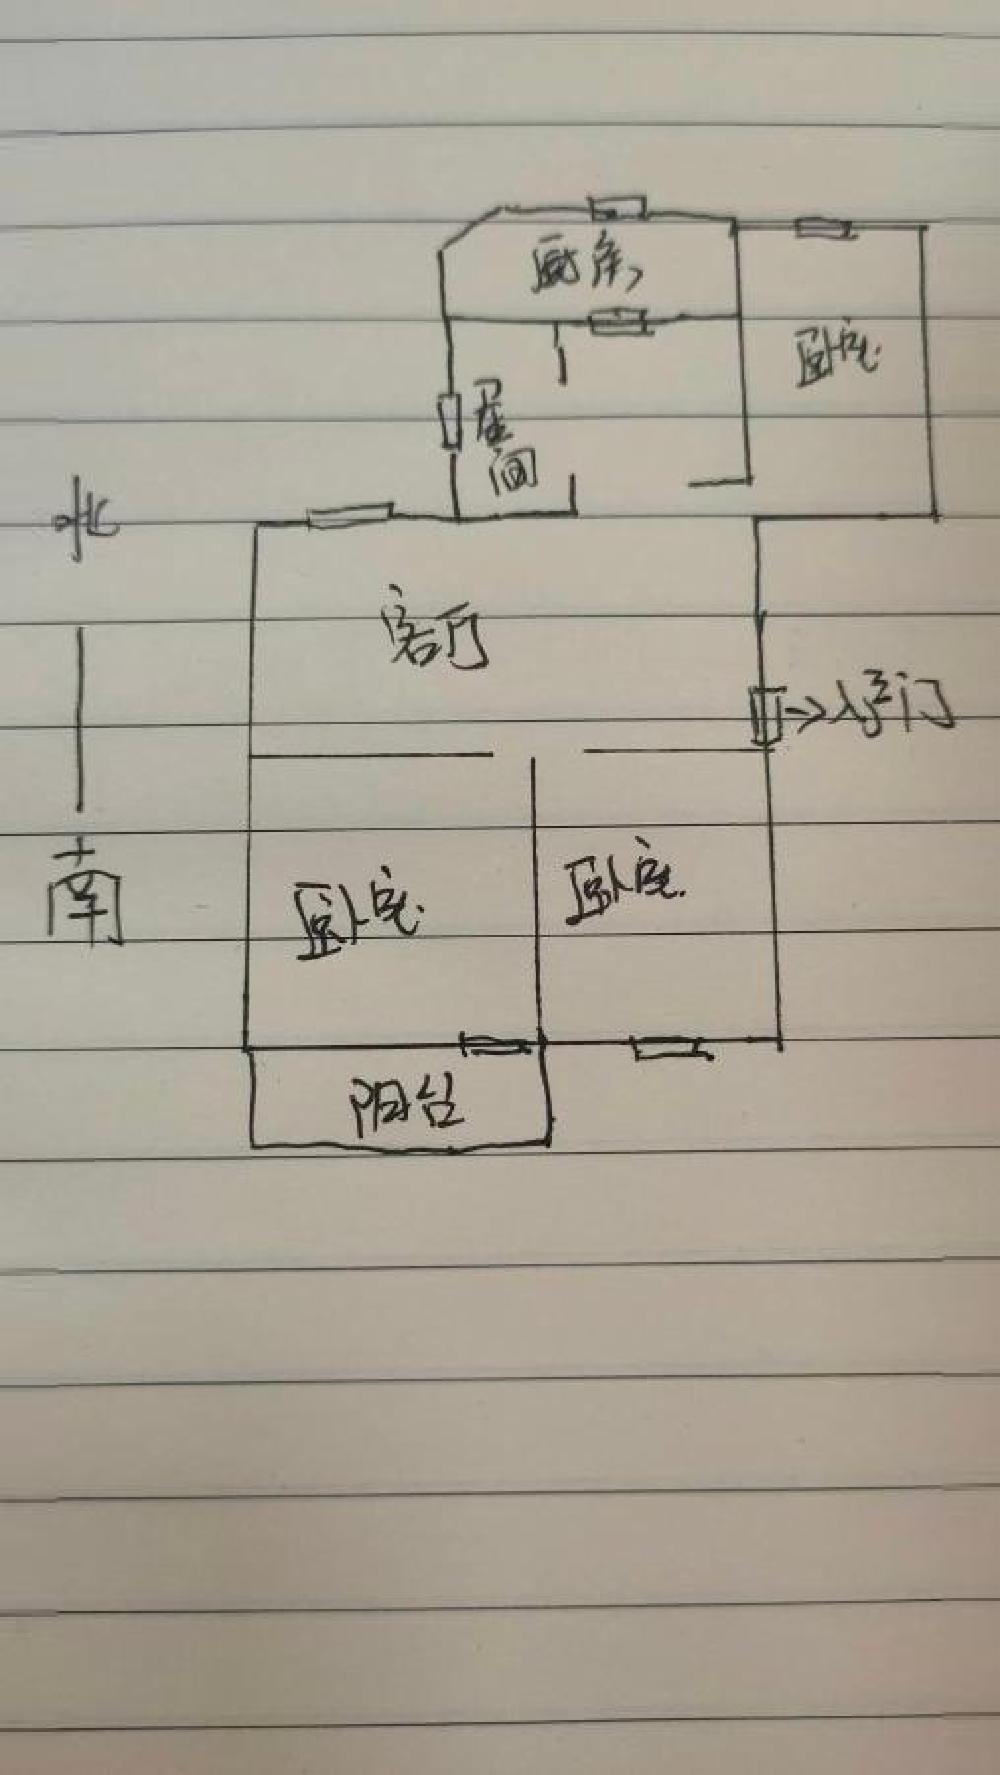 厨房
卧室
卫生间
北
客厅
→入户门
南
卧室
卧室
阳台